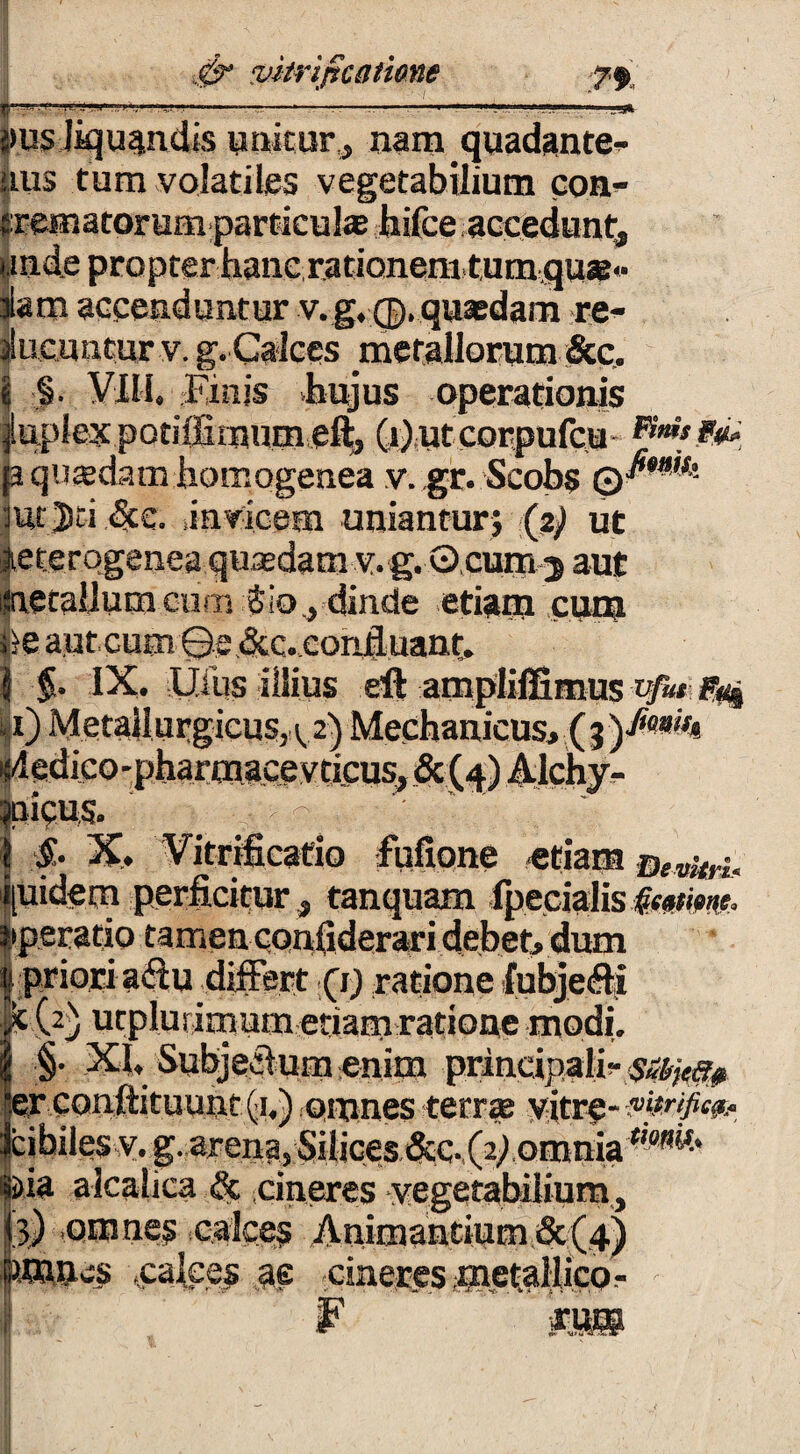 & vitrificatione 79.
bus liquandis unitur, nam quadante-
nus tum volatiles vegetabilium con-
crematorum particulæ hiſce accedunt,
unde propter hanc rationem tum quæ-
dam accenduntur v. g. 🜕. quædam re-
ducuntur v. g. Calces metallorum &c.
§. VIII. Finis hujus operationis
duplex potiſſimum eſt, (1) ut corpuſcu- Finis Fu-
la quædam homogenea v. gr. Scobs ☉ ſionis.
aut ☽ti &c. invicem uniantur; (2) ut
heterogenea quædam v. g. ☉ cum aut
metallum cum io, dinde etiam cum
aut cum &c. confluant.
§. IX. Uſus illius eſt ampliſſimus vſus Fu-
1) Metallurgicus, (2) Mechanicus, (3) ſionis.
Medico-pharmacevticus, & (4) Alchy-
micus.
§. X. Vitrificatio fuſione etiam De vitri-
quidem perficitur, tanquam ſpecialis ficatione.
operatio tamen conſiderari debet, dum
à priori actu differt (1) ratione ſubjecti
& (2) utplurimum etiam ratione modi.
§. XI. Subjectum enim principali- Subjecta
ter conſtituunt (1.) omnes terræ vitre- vitrifica-
ſcibiles v. g. arena, Silices &c. (2) omnia tionis.
ſalia alcalica & cineres vegetabilium,
(3) omnes calces Animantium & (4)
omnes calces ac cineres metallico-
F rum